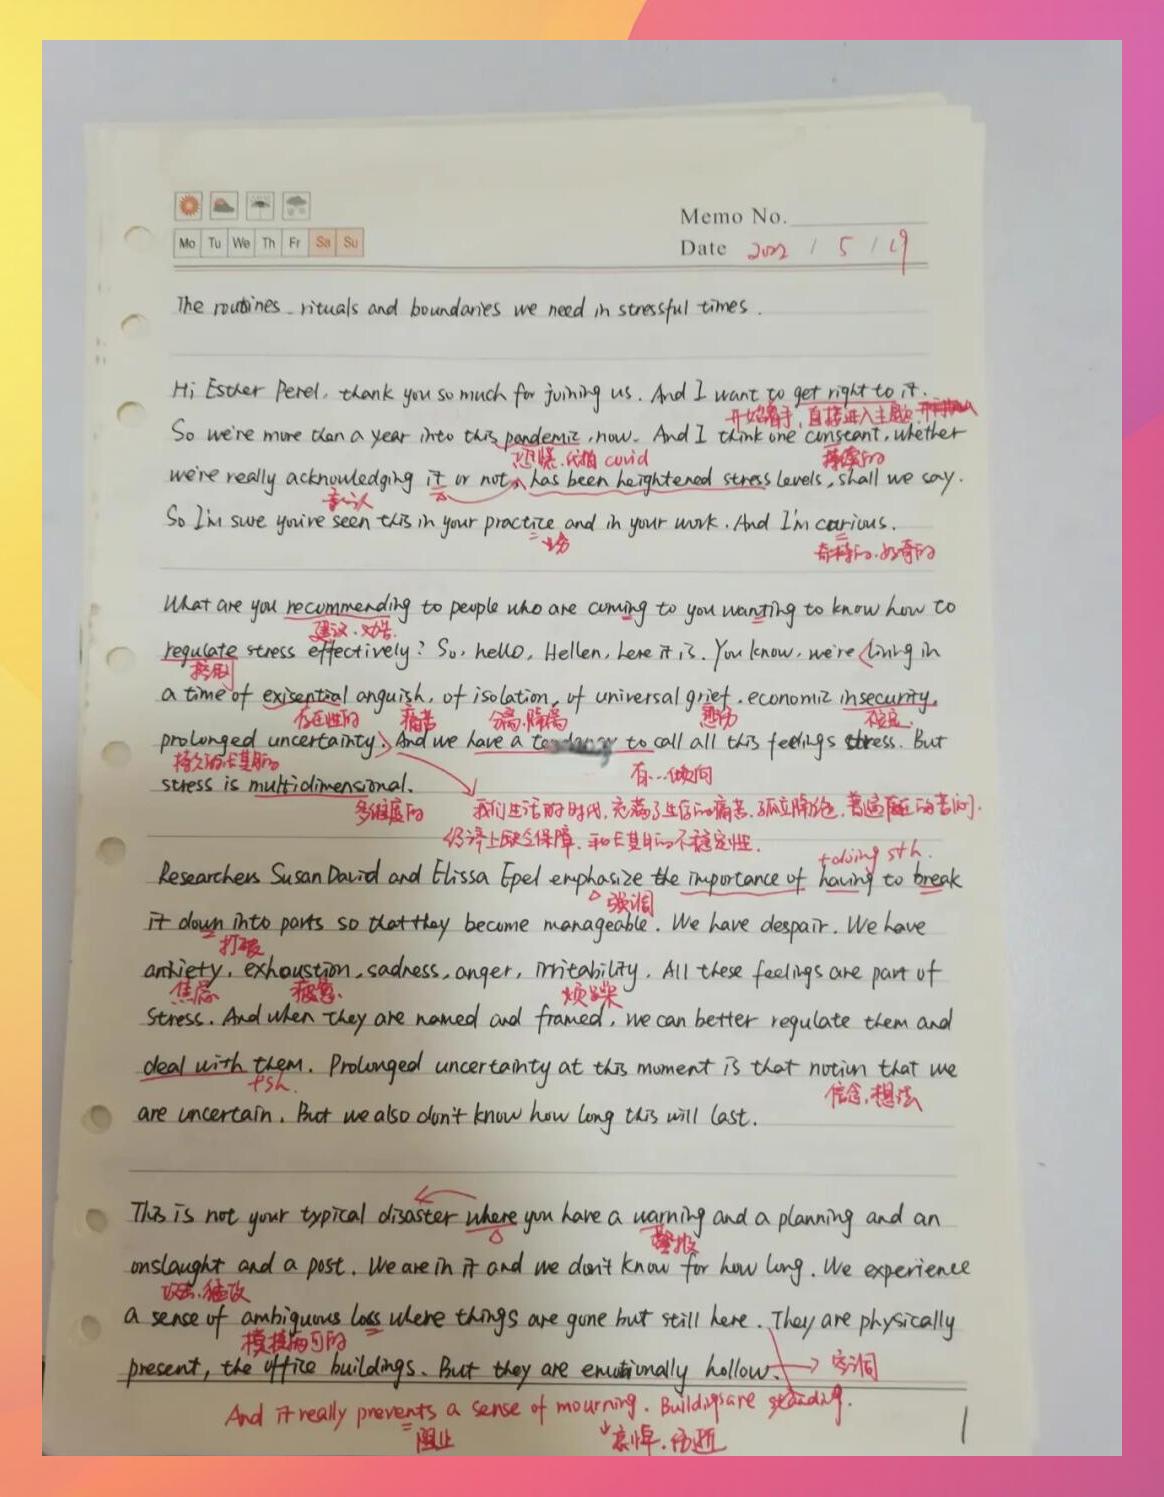 Mo Tu We Th Fr Sa Su
Memo No.
Date 2022 / 5 / 19
The routines. rituals and boundaries we need in stressful times.
Hi Esther Perel, thank you so much for joining us. And I want to get right to it.
开始着手, 直接进入主题
So we're more than a year into this pandemic, now. And I think one constant, whether
恐慌.代指 covid
持续的
we're really acknowledging it or not, has been heightened stress levels, shall we say.
承认
So I'm sure you've seen this in your practice and in your work. And I'm curious.
业务
奇特的.好奇的
What are you recommending to people who are coming to you wanting to know how to
建议.劝告.
regulate stress effectively? So, hello, Hellen, here it is. You know, we're living in
控制
a time of exisential anguish, of isolation, of universal grief. economic insecurity,
存在性的 痛苦 分离.隔离 悲伤 不稳定
prolonged uncertainty. And we have a tendency to call all this feelings stress. But
持久的长期的
有...倾向
stress is multidimensional.
多维度的
我们生活的时代, 充满了生存的痛苦.孤立隔绝, 普遍的苦闷.
经济上缺乏保障, 和长期的不稳定性.
+doing sth.
Researchers Susan David and Elissa Epel emphasize the importance of having to break
强调
it down into parts so that they become manageable. We have despair. We have
打破
anxiety, exhaustion, sadness, anger, irritability. All these feelings are part of
焦虑 疲惫. 烦躁
stress. And when they are named and framed, we can better regulate them and
deal with them. Prolonged uncertainty at this moment is that notion that we
+sth.
信念.想法
are uncertain. But we also don't know how long this will last.
This is not your typical disaster where you have a warning and a planning and an
警报
onslaught and a post. We are in it and we don't know for how long. We experience
攻击.猛攻
a sense of ambiguous loss where things are gone but still here. They are physically
模棱两可的
present, the office buildings. But they are emotionally hollow.
空洞
And it really prevents a sense of mourning. Buildings are standing.
阻止
哀悼.伤逝
1